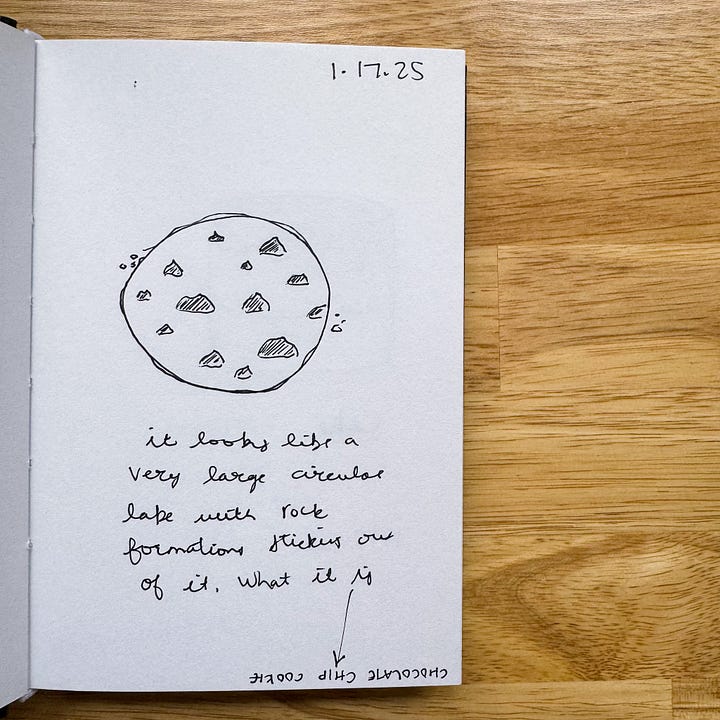 1.17.25
it looks like a
very large circular
lake with rock
formations sticking out
of it. What it is
CHOCOLATE CHIP COOKIE